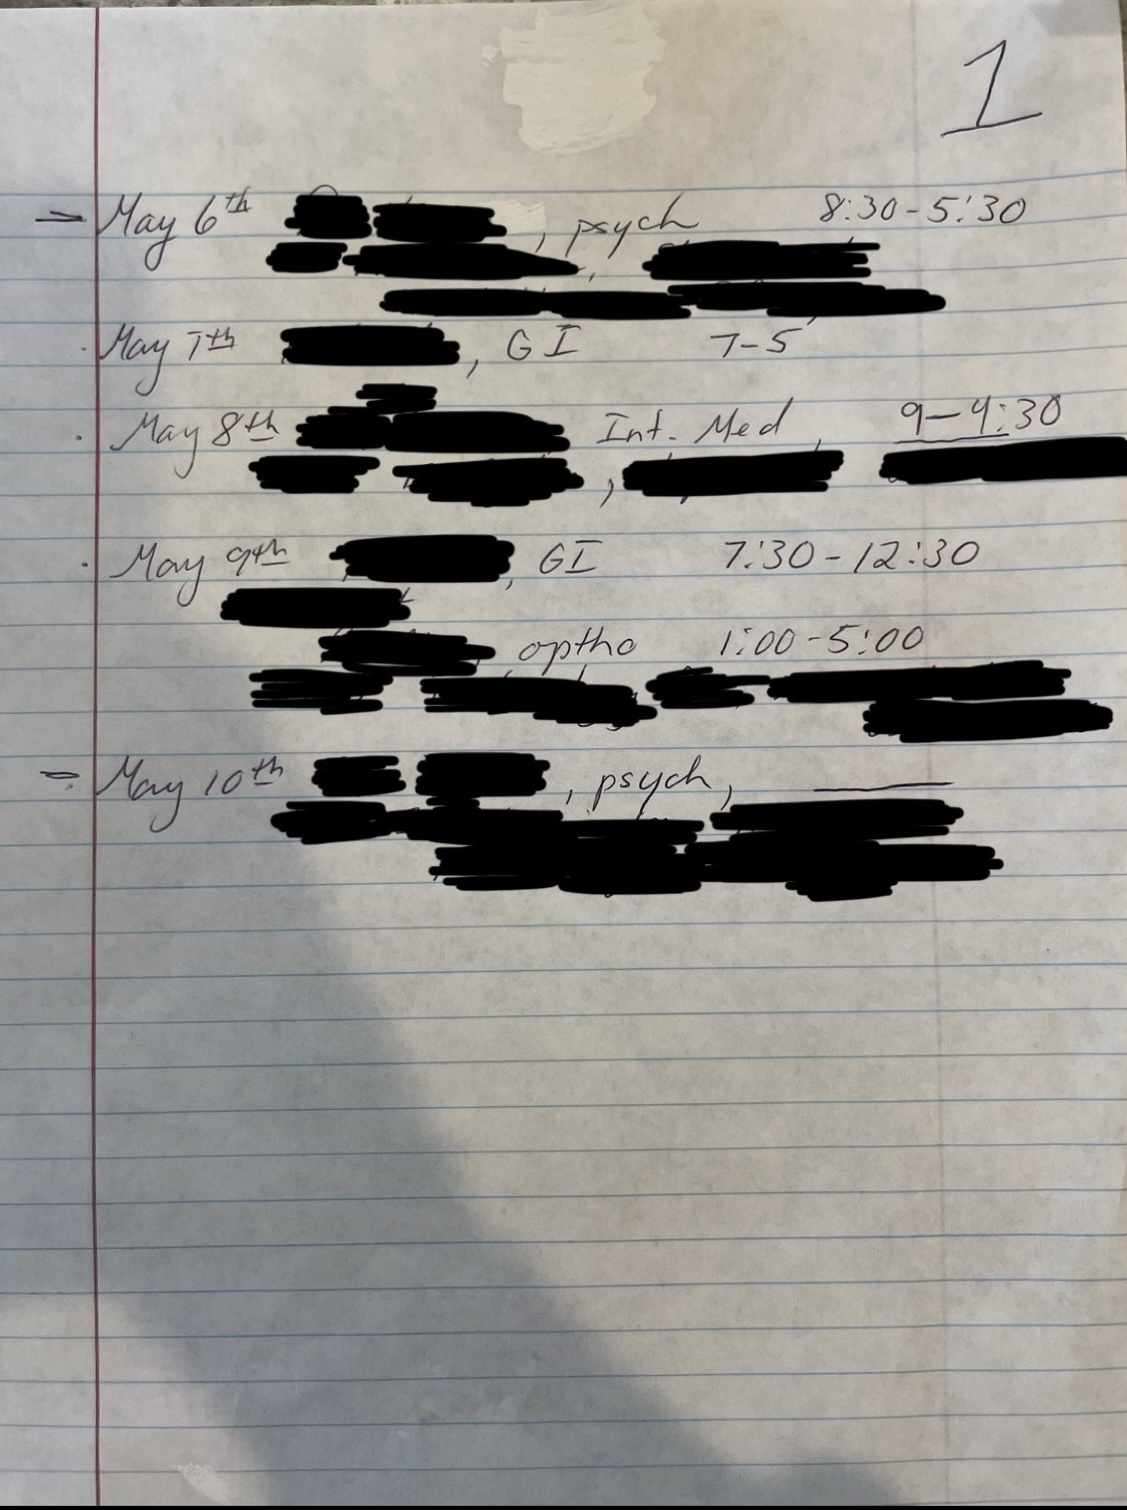 1
- May 6th , psych 8:30-5:30
,
· May 7th , GI 7-5
· May 8th Int. Med , 9-4:30
,
· May 9th , GI 7:30-12:30
optho 1:00-5:00
= May 10th , psych,